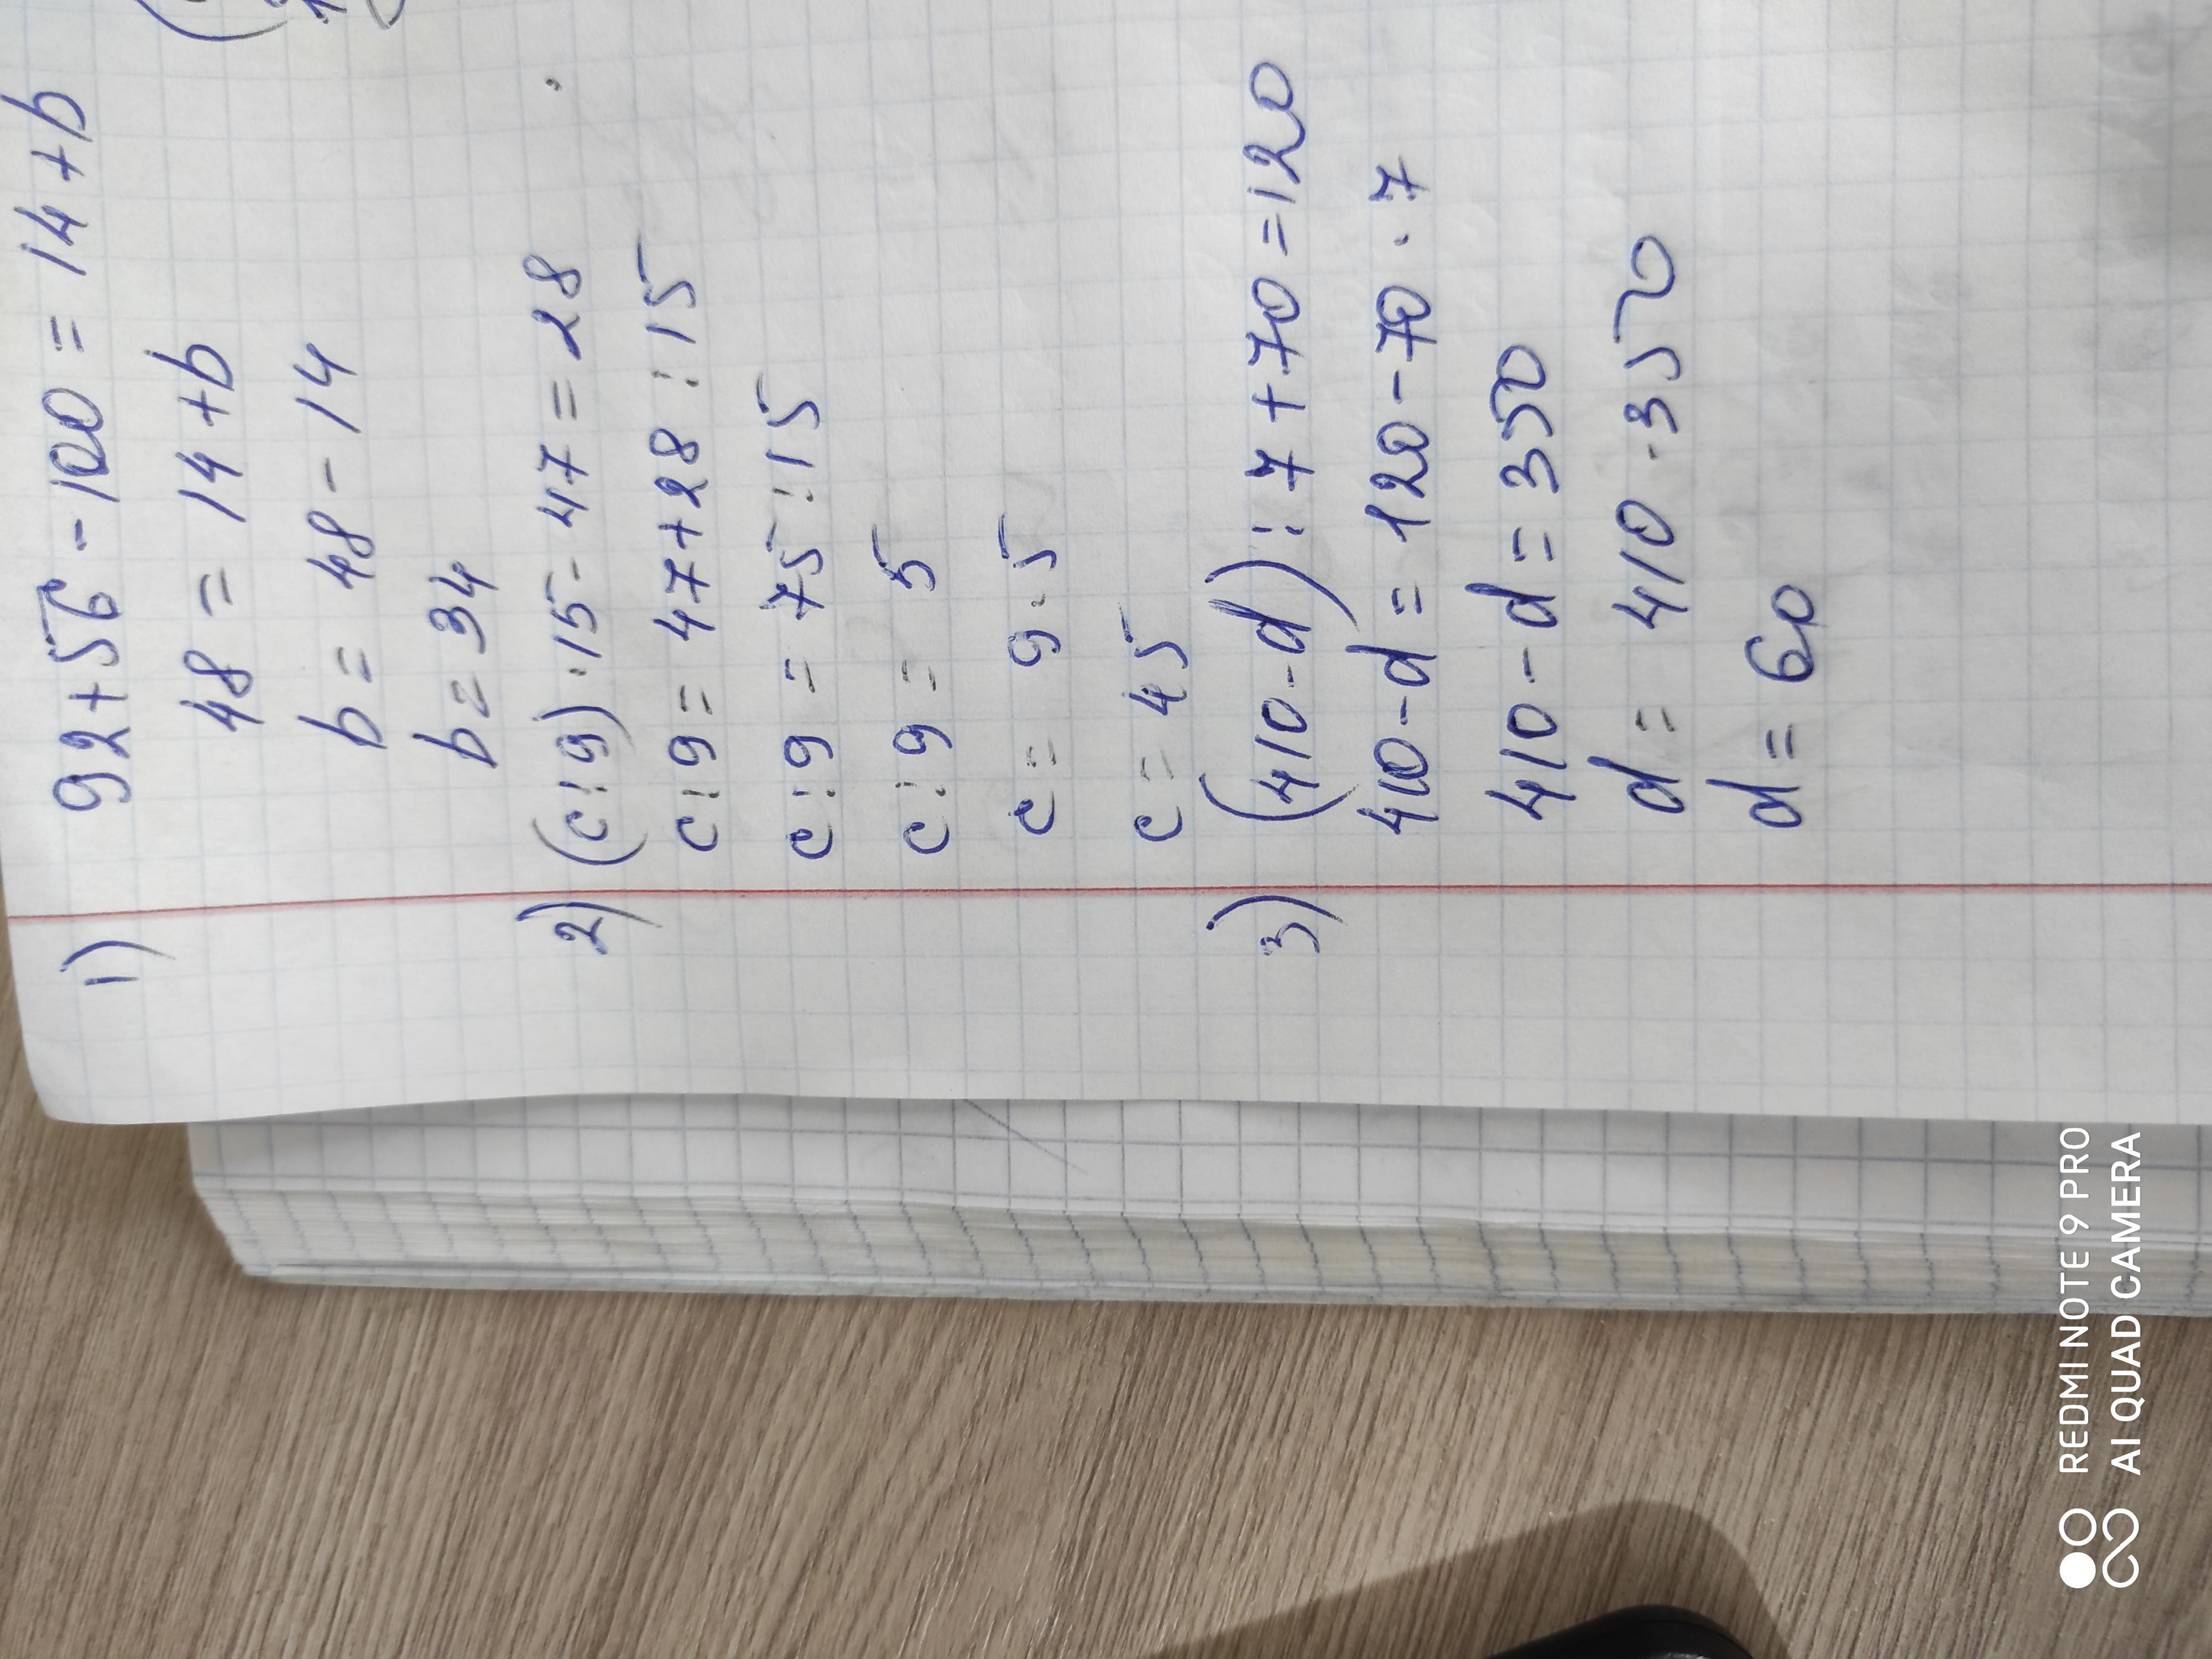 1) 92+56-100=14+b
48=14+b
b=48-14
b=34
2) (c:9)·15-47=28
c:9=47+28:15
c:9=75:15
c:9=5
c=9·5
c=45
3) (410-d):7+70=120
410-d=120-70·7
410-d=350
d=410-350
d=60
REDMI NOTE 9 PRO
AI QUAD CAMERA